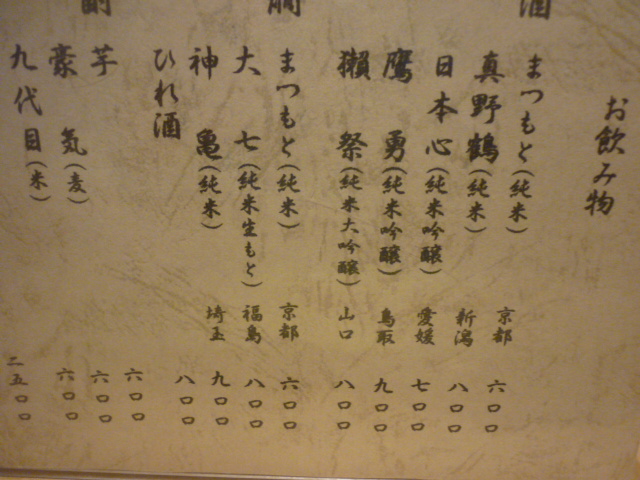 お飲み物
酒
まつもと(純米) 京都 六〇〇
真野鶴(純米) 新潟 八〇〇
日本心(純米吟醸) 愛媛 七〇〇
鷹勇(純米吟醸) 鳥取 九〇〇
獺祭(純米大吟醸) 山口 八〇〇
まつもと(純米) 京都 六〇〇
大七(純米生もと) 福島 八〇〇
神亀(純米) 埼玉 九〇〇
ひれ酒 八〇〇
芋 六〇〇
豪気(麦) 六〇〇
九代目(米) 六〇〇
二五〇〇